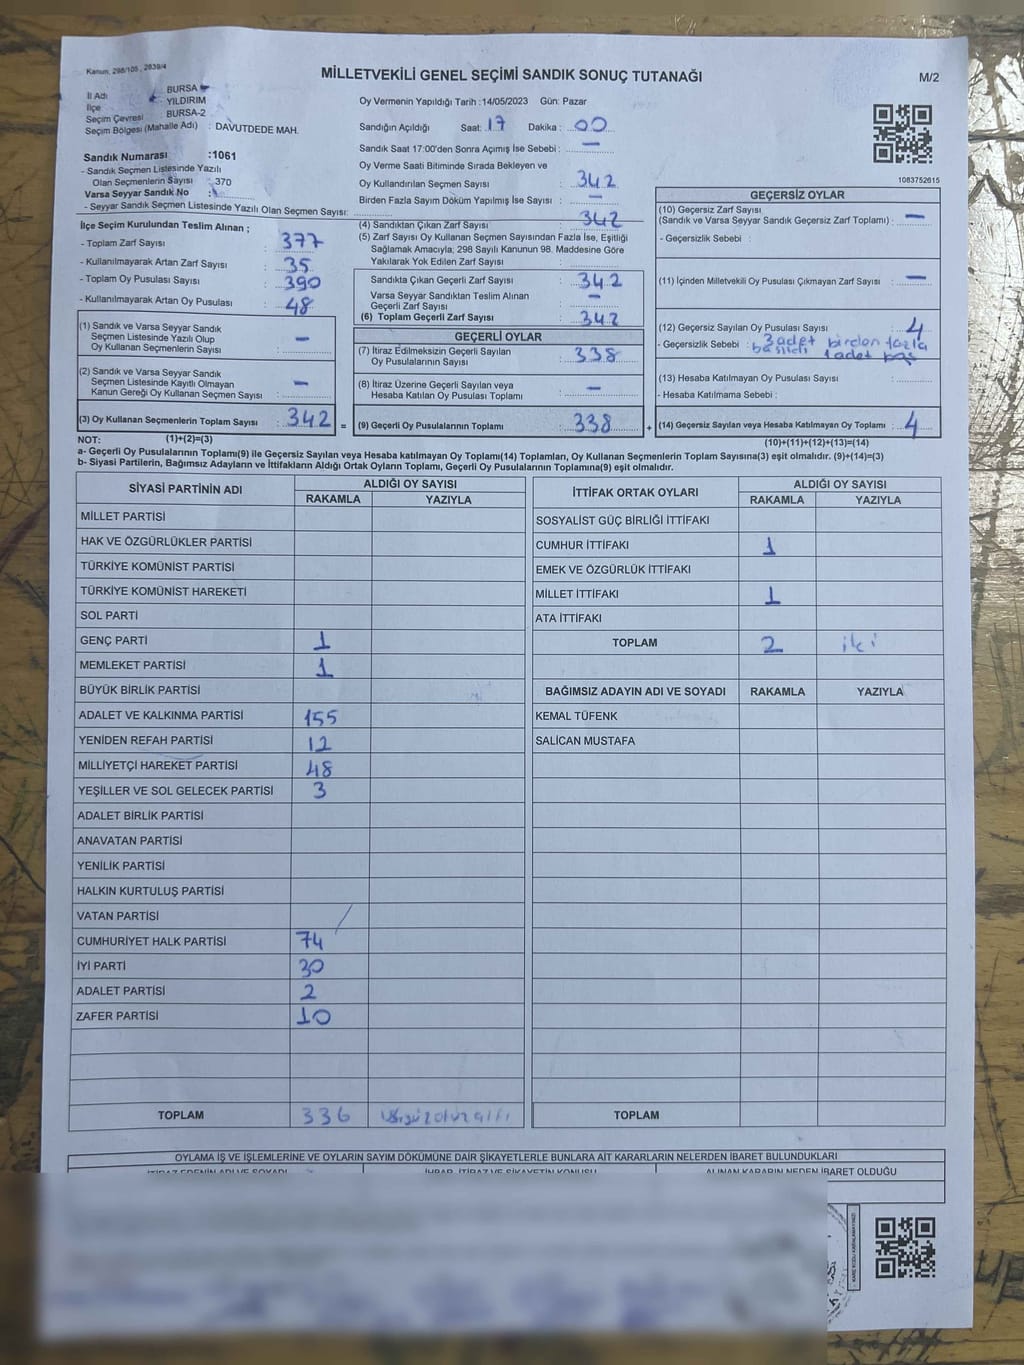 Kanun, 298/105, 2839/4
MİLLETVEKİLİ GENEL SEÇİMİ SANDIK SONUÇ TUTANAĞI
M/2
İl Adı : BURSA
İlçe : YILDIRIM
Seçim Çevresi : BURSA-2
Seçim Bölgesi (Mahalle Adı) : DAVUTDEDE MAH.
Sandık Numarası :1061
- Sandık Seçmen Listesinde Yazılı
Olan Seçmenlerin Sayısı : 370
Varsa Seyyar Sandık No :
- Seyyar Sandık Seçmen Listesinde Yazılı Olan Seçmen Sayısı:
Oy Vermenin Yapıldığı Tarih :14/05/2023 Gün: Pazar
Sandığın Açıldığı Saat: 17 Dakika : 00
Sandık Saat 17:00'den Sonra Açımış İse Sebebi : —
Oy Verme Saati Bitiminde Sırada Bekleyen ve
Oy Kullandırılan Seçmen Sayısı : 342
Birden Fazla Sayım Döküm Yapılmış İse Sayısı : —
1083752615
İlçe Seçim Kurulundan Teslim Alınan ;
- Toplam Zarf Sayısı : 377
- Kullanılmayarak Artan Zarf Sayısı : 35
- Toplam Oy Pusulası Sayısı : 390
- Kullanılmayarak Artan Oy Pusulası : 48
(1) Sandık ve Varsa Seyyar Sandık
Seçmen Listesinde Yazılı Olup
Oy Kullanan Seçmenlerin Sayısı : —
(2) Sandık ve Varsa Seyyar Sandık
Seçmen Listesinde Kayıtlı Olmayan
Kanun Gereği Oy Kullanan Seçmen Sayısı : —
(3) Oy Kullanan Seçmenlerin Toplam Sayısı : 342 =
(4) Sandıktan Çıkan Zarf Sayısı : 342
(5) Zarf Sayısı Oy Kullanan Seçmen Sayısından Fazla İse, Eşitliği
Sağlamak Amacıyla; 298 Sayılı Kanunun 98. Maddesine Göre
Yakılarak Yok Edilen Zarf Sayısı :
Sandıkta Çıkan Geçerli Zarf Sayısı : 342
Varsa Seyyar Sandıktan Teslim Alınan
Geçerli Zarf Sayısı : —
(6) Toplam Geçerli Zarf Sayısı : 342
GEÇERLİ OYLAR
(7) İtiraz Edilmeksizin Geçerli Sayılan
Oy Pusulalarının Sayısı : 338
(8) İtiraz Üzerine Geçerli Sayılan veya
Hesaba Katılan Oy Pusulası Toplamı : —
(9) Geçerli Oy Pusulalarının Toplamı : 338 +
GEÇERSİZ OYLAR
(10) Geçersiz Zarf Sayısı
(Sandık ve Varsa Seyyar Sandık Geçersiz Zarf Toplamı) : —
- Geçersizlik Sebebi :
(11) İçinden Milletvekili Oy Pusulası Çıkmayan Zarf Sayısı : —
(12) Geçersiz Sayılan Oy Pusulası Sayısı : 4
- Geçersizlik Sebebi : 3 adet birden fazla
basıldı 1 adet boş
(13) Hesaba Katılmayan Oy Pusulası Sayısı :
- Hesaba Katılmama Sebebi :
(14) Geçersiz Sayılan veya Hesaba Katılmayan Oy Toplamı : 4
NOT: (1)+(2)=(3)
(10)+(11)+(12)+(13)=(14)
a- Geçerli Oy Pusulasının Toplamı(9) ile Geçersiz Sayılan veya Hesaba katılmayan Oy Toplamı(14) Toplamları, Oy Kullanan Seçmenlerin Toplam Sayısına(3) eşit olmalıdır. (9)+(14)=(3)
b- Siyasi Partilerin, Bağımsız Adayların ve İttifakların Aldığı Ortak Oyların Toplamı, Geçerli Oy Pusulalarının Toplamına(9) eşit olmalıdır.
SİYASİ PARTİNİN ADI ALDIĞI OY SAYISI
RAKAMLA YAZIYLA
MİLLET PARTİSİ
HAK VE ÖZGÜRLÜKLER PARTİSİ
TÜRKİYE KOMÜNİST PARTİSİ
TÜRKİYE KOMÜNİST HAREKETİ
SOL PARTİ
GENÇ PARTİ 1
MEMLEKET PARTİSİ 1
BÜYÜK BİRLİK PARTİSİ
ADALET VE KALKINMA PARTİSİ 155
YENİDEN REFAH PARTİSİ 12
MİLLİYETÇİ HAREKET PARTİSİ 48
YEŞİLLER VE SOL GELECEK PARTİSİ 3
ADALET BİRLİK PARTİSİ
ANAVATAN PARTİSİ
YENİLİK PARTİSİ
HALKIN KURTULUŞ PARTİSİ
VATAN PARTİSİ
CUMHURİYET HALK PARTİSİ 74
İYİ PARTİ 30
ADALET PARTİSİ 2
ZAFER PARTİSİ 10
TOPLAM 336 üçyüzotuzaltı
İTTİFAK ORTAK OYLARI ALDIĞI OY SAYISI
RAKAMLA YAZIYLA
SOSYALİST GÜÇ BİRLİĞİ İTTİFAKI
CUMHUR İTTİFAKI 1
EMEK VE ÖZGÜRLÜK İTTİFAKI
MİLLET İTTİFAKI 1
ATA İTTİFAKI
TOPLAM 2 iki
BAĞIMSIZ ADAYIN ADI VE SOYADI RAKAMLA YAZIYLA
KEMAL TÜFENK
SALİCAN MUSTAFA
TOPLAM
OYLAMA İŞ VE İŞLEMLERİNE VE OYLARIN SAYIM DÖKÜMÜNE DAİR ŞİKAYETLERLE BUNLARA AİT KARARLARIN NELERDEN İBARET BULUNDUKLARI
İTİRAZ EDENİN ADI VE SOYADI İHBAR, İTİRAZ VE ŞİKAYETİN KONUSU ALINAN KARARIN NEDEN İBARET OLDUĞU